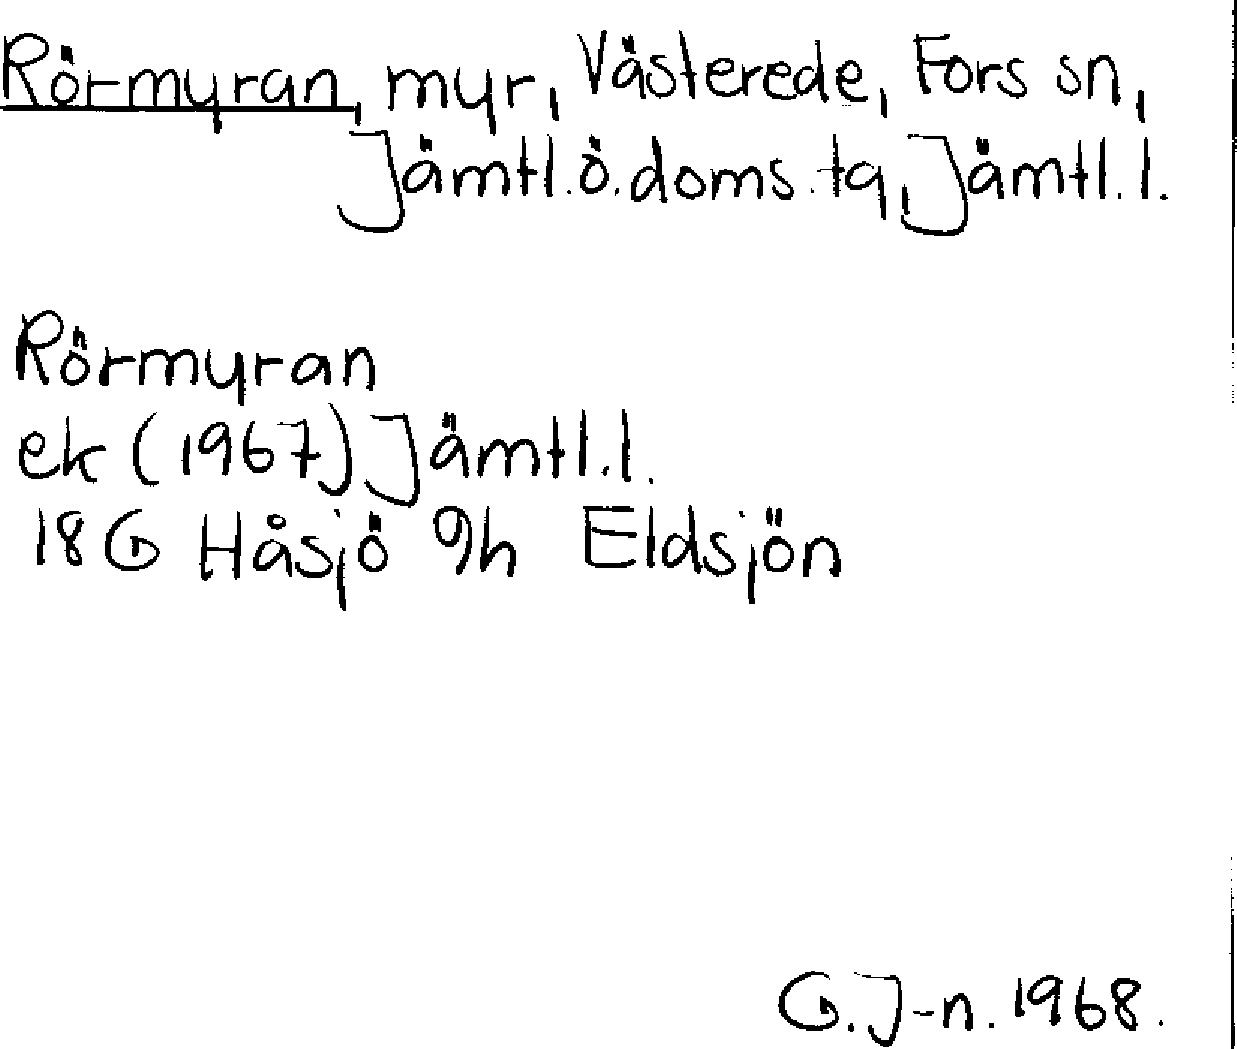 Rörmyran, myr, Västerede, Fors sn,
Jämtl.ö.doms.tg, Jämtl.l.
Rörmyran
ek (1967) Jämtl.l.
18G Håsjö 9h Eldsjön
G.J-n. 1968.